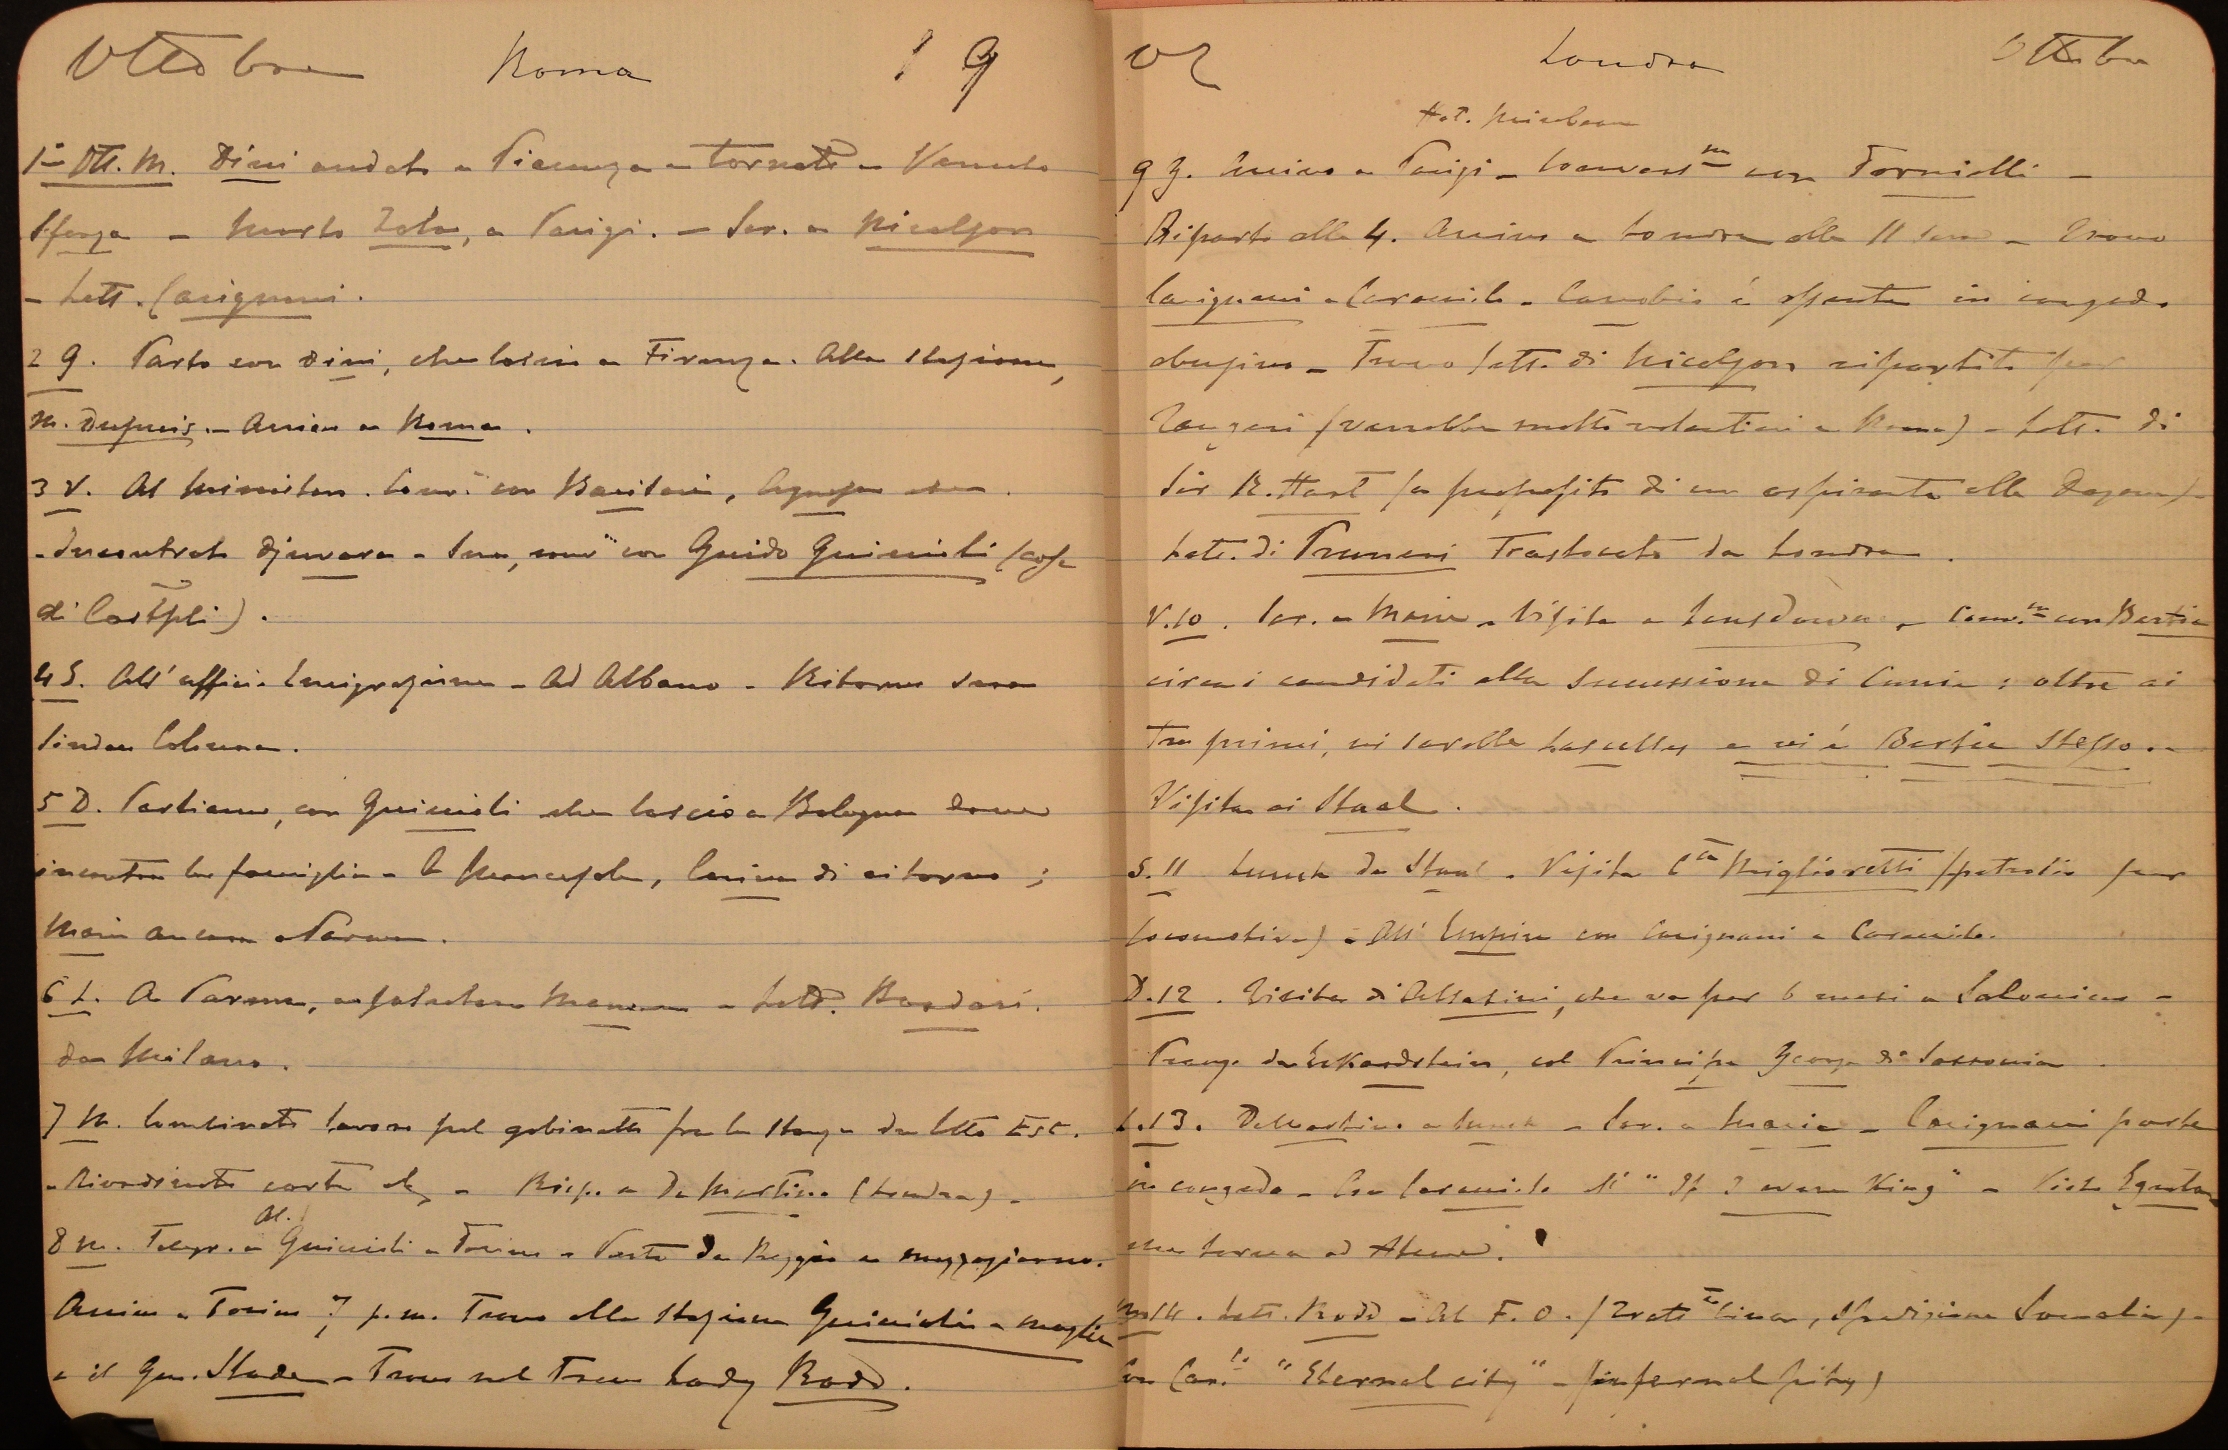 Ottobre Roma 19
1° Ott. M. Dini andato a Piacenza e tornato - Vennero
Sforza - Morto Zola, a Parigi. - Scr. a Nicolson
- Lett. Carignani.
2 G. Parto con Dini, che lascio a Firenze. Alla stazione,
M. Dupuis. - Arrivo a Roma.
3 V. Al Ministero. Conv. con
- Incontrato Djuvara - Sera, conv. con Guido Guiccioli (casa
di
4 S. All' ufficio Emigrazione - Ad Albano - Ritorno sera
Colonna.
5 D. Partiamo, con Guiccioli che lascio a Bologna dove
incontra la famiglia - A di ritorno ;
ancora a Parma.
6 L. A Parma, a - Lett. Bordari.
da Milano.
7 M. Combinato lavoro pel gabinetto fra la stanza da letto Est.
- Riordinato carte etc - Risp. a De Martino (Londra) -
Al.
8 M. Telegr. a Guiccioli a Torino - Parto da Reggio a mezzogiorno.
Arrivo a Torino 7 p.m. Trovo alla stazione Guiccioli e moglie
e il Gen. - Trovo nel treno Lady Rodd.
02 Londra Ottobre
Hot. Mirabeau
9 G. Arrivo a Parigi - Convers.ne con Tornielli -
Riparto alle 4. Arrivo a Londra alle 11 sera - Trovo
Carignani e Caracciolo - è assente in congedo
- Trovo lett. di Nicolson ripartito per
Tangeri (verrebbe molto volentieri a Roma) - Lett. di
Sir R. Hart (a proposito di un aspirante alle Dogane) -
Lett. di traslocato da Londra.
V. 10. Scr. a Maria - Visita a Lansdowne - Conv.ne con Bertie
circa i candidati alla successione di Currie : oltre ai
tre primi, vi sarebbe Lascelles e vi è Bertie stesso. -
Visita ai Staal.
S. 11 Lunch da Staal - Visita Cte Miglioretti (petrolio per
locomotive) - All' Empire con Carignani e Caracciolo.
D. 12. Visita di , che va per 6 mesi a Salonicco -
Pranzo da Eckardstein, col Principe George di Sassonia.
L. 13. De Martino a lunch - Scr. a Maria - Carignani parte
in congedo - Con Caracciolo al "If I were King" - Visto Egerton
che torna ad Atene.
M. 14. Lett. Rodd - Al F. O. (Tratt.to Cina, spedizione Somalia) -
Con Car.lo "Eternal city" - (infernal pity)